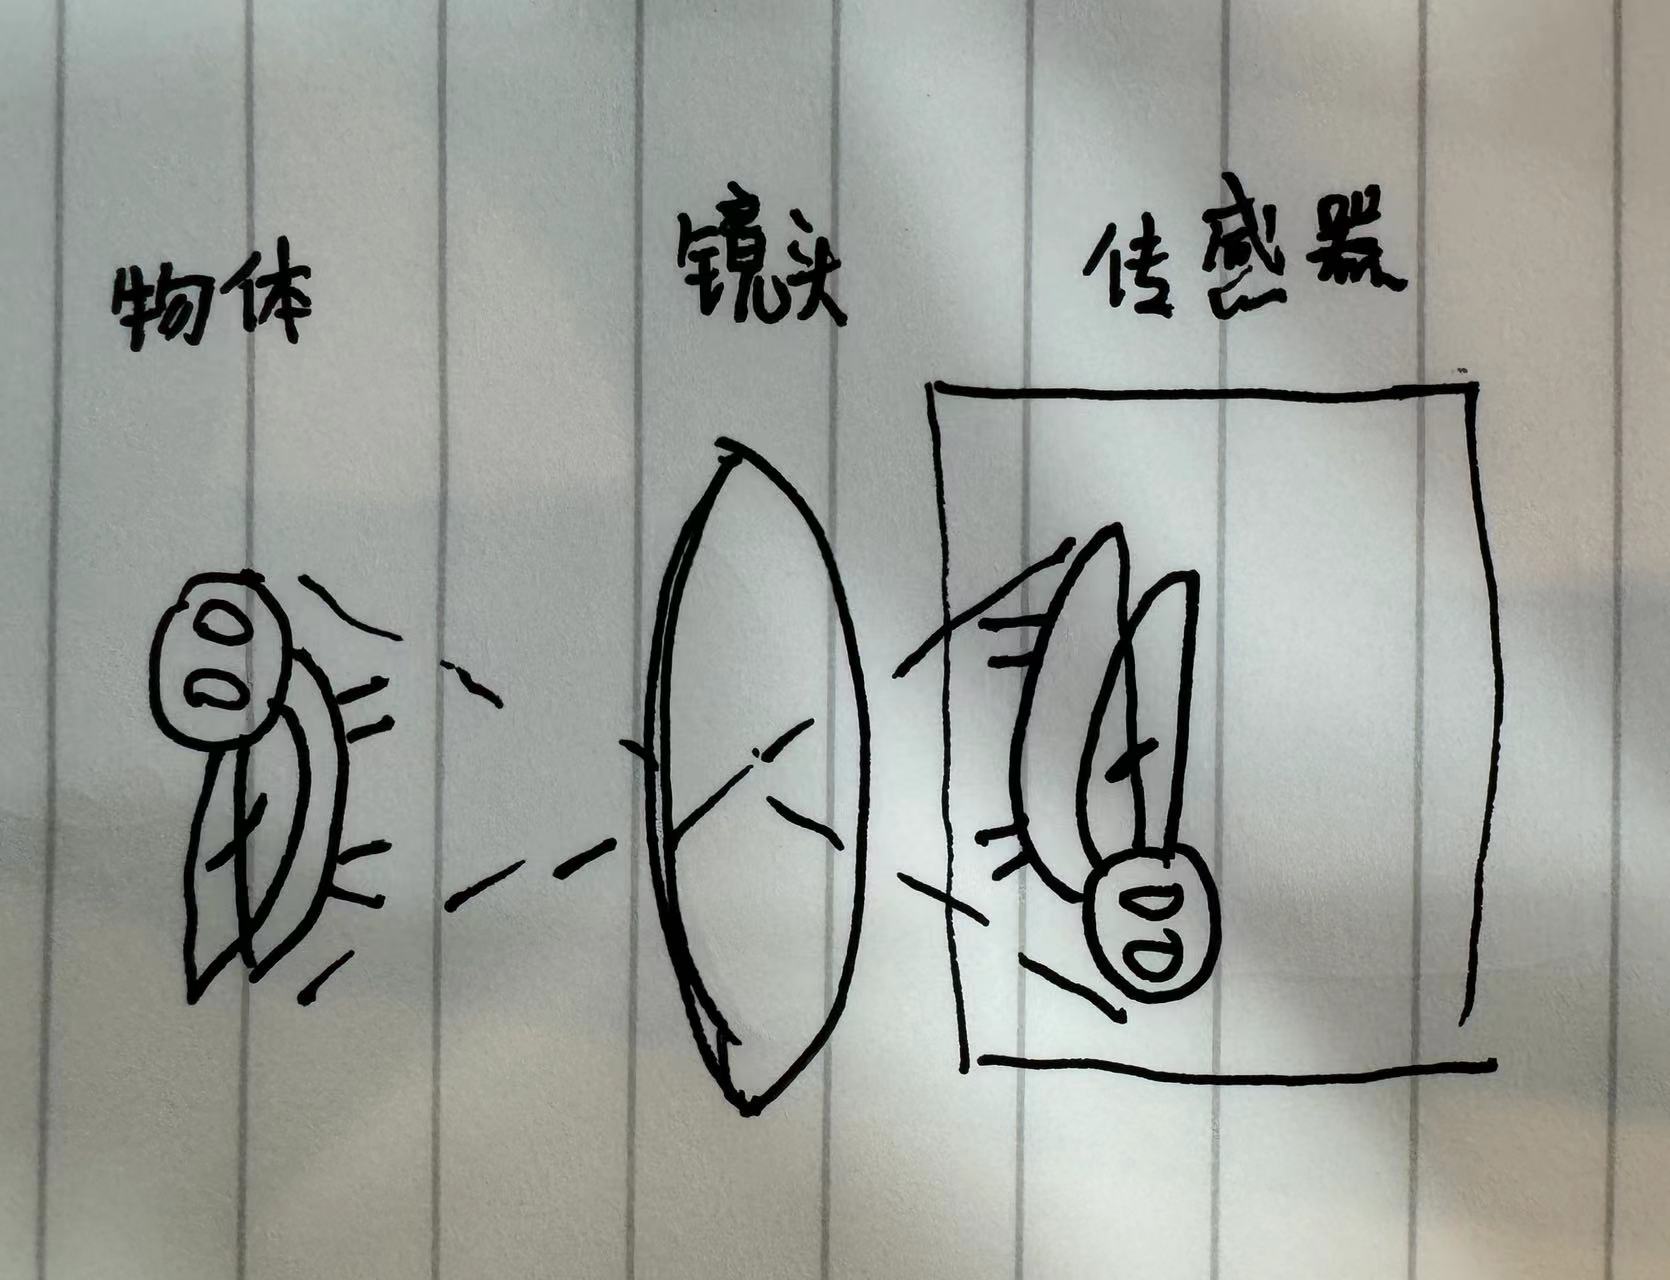 物体
镜头
传感器